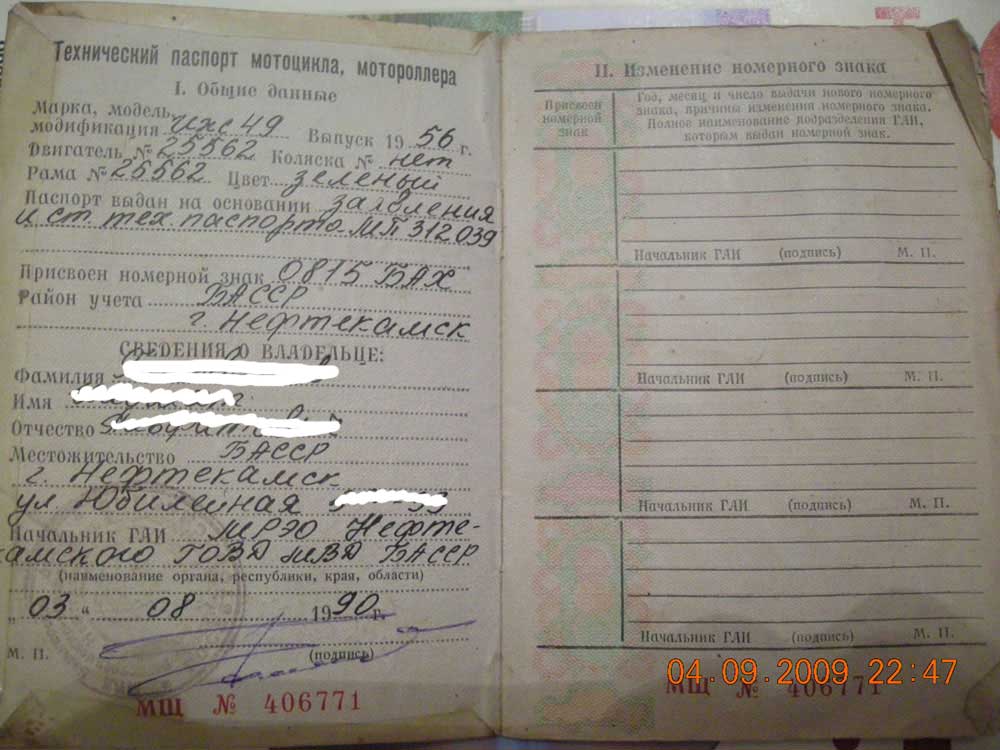 Технический паспорт мотоцикла, мотороллера
I. Общие данные
Марка, модель,
модификация ИЖ 49 Выпуск 1956 г.
Двигатель № 25562 Коляска № нет
Рама № 25562 Цвет зеленый
Паспорт выдан на основании заявления
и ст. тех. паспорта МП 312039
Присвоен номерной знак 0815 БАХ
Район учета БАССР
г. Нефтекамск
СВЕДЕНИЯ О ВЛАДЕЛЬЦЕ:
Фамилия
Имя
Отчество
Местожительство БАССР
г. Нефтекамск
ул Юбилейная
Начальник ГАИ МРЭО Нефте-
камского ГОВД МВД БАССР
(наименование органа, республики, края, области)
„ 03 “ 08 1990 г.
М. П. (подпись)
МЩ № 406771
II. Изменение номерного знака
Присвоен
номерной
знак
Год, месяц и число выдачи нового номерного
знака, причины изменения номерного знака.
Полное наименование подразделения ГАИ,
которым выдан номерной знак.
Начальник ГАИ (подпись) М. П.
Начальник ГАИ (подпись) М. П.
Начальник ГАИ (подпись) М. П.
Начальник ГАИ (подпись) М. П.
04.09.2009 22:47
МЩ № 406771